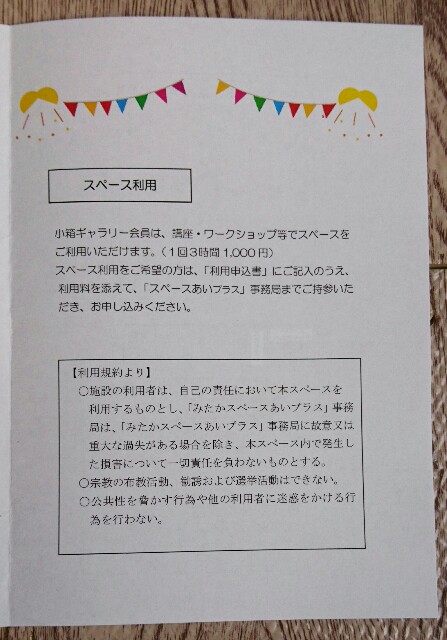 スペース利用
小箱ギャラリー会員は、講座・ワークショップ等でスペースを
ご利用いただけます。(1回3時間1,000円)
スペース利用をご希望の方は、「利用申込書」にご記入のうえ、
利用料を添えて、「スペースあいプラス」事務局までご持参いた
だき、お申し込みください。
【利用規約より】
○施設の利用者は、自己の責任において本スペースを
利用するものとし、「みたかスペースあいプラス」事務
局は、「みたかスペースあいプラス」事務局に故意又は
重大な過失がある場合を除き、本スペース内で発生し
た損害について一切責任を負わないものとする。
○宗教の布教活動、勧誘および選挙活動はできない。
○公共性を脅かす行為や他の利用者に迷惑をかける行
為を行わない。